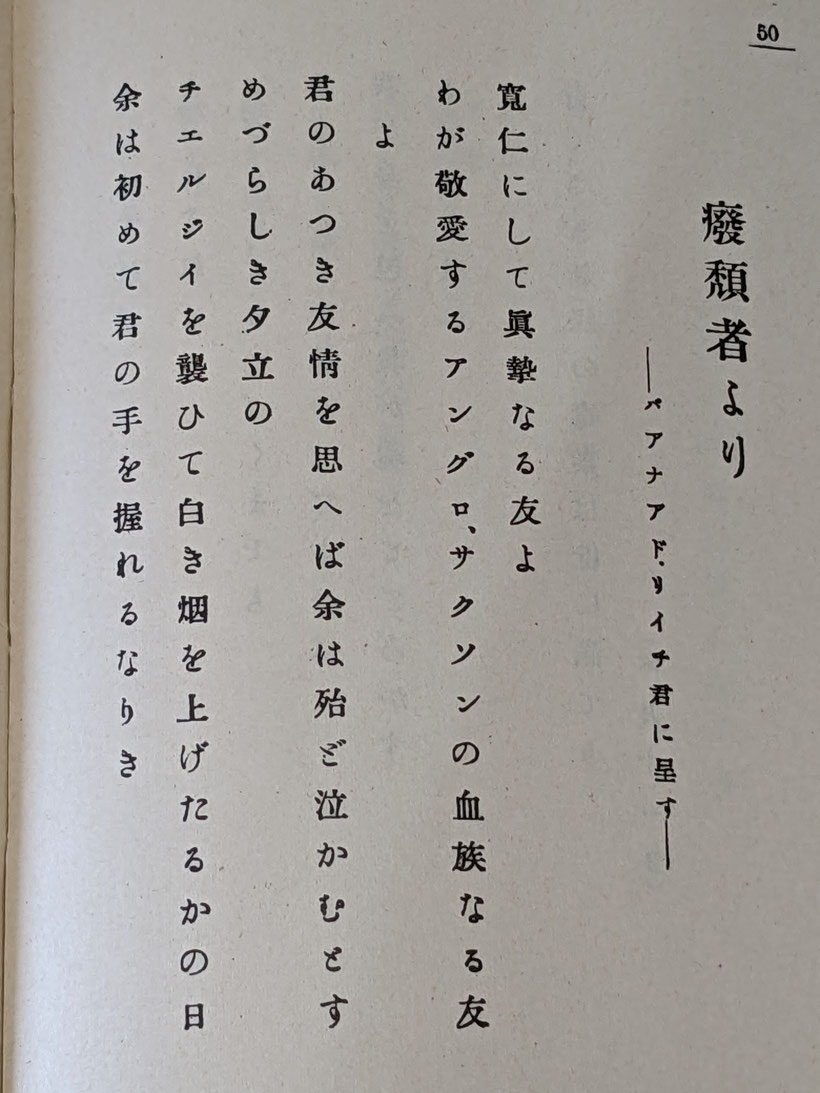 50
癈頽者より
──バアナアド、リイチ君に呈す──
寬仁にして眞摯なる友よ
わが敬愛するアングロ、サクソンの血族なる友
よ
君のあつき友情を思へば余は殆ど泣かむとす
めづらしき夕立の
チエルジイを襲ひて白き烟を上げたるかの日
余は初めて君の手を握れるなりき